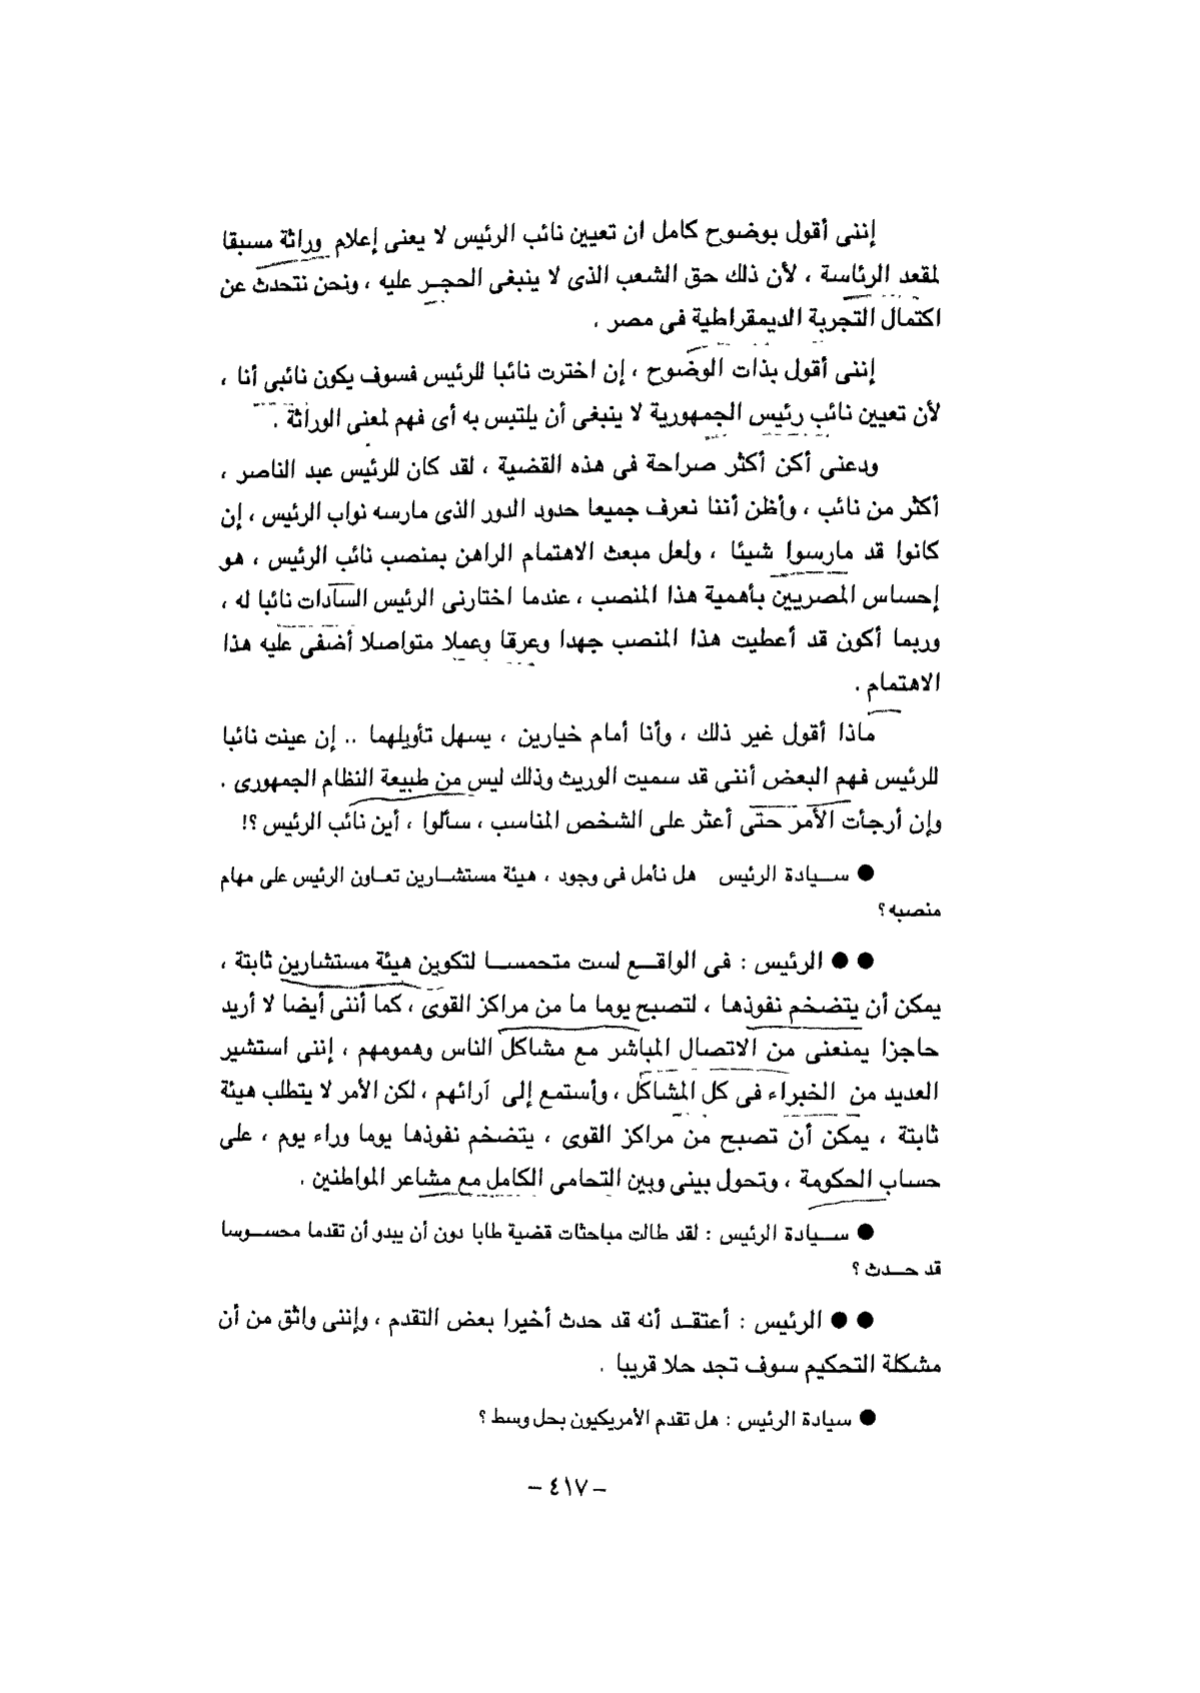 إننى أقول بوضوح كامل ان تعيين نائب الرئيس لا يعنى إعلام وراثة مسبقا
لمقعد الرئاسة ، لأن ذلك حق الشعب الذى لا ينبغى الحجـر عليه ، ونحن نتحدث عن
اكتمال التجربة الديمقراطية فى مصر .
إننى أقول بذات الوضوح ، إن اخترت نائبا للرئيس فسوف يكون نائبى أنا ،
لأن تعيين نائب رئيس الجمهورية لا ينبغى أن يلتبس به أى فهم لمعنى الوراثة .
ودعنى أكن أكثر صراحة فى هذه القضية ، لقد كان للرئيس عبد الناصر ،
أكثر من نائب ، وأظن أننا نعرف جميعا حدود الدور الذى مارسه نواب الرئيس ، إن
كانوا قد مارسوا شيئا ، ولعل مبعث الاهتمام الراهن بمنصب نائب الرئيس ، هو
إحساس المصريين بأهمية هذا المنصب ، عندما اختارنى الرئيس السادات نائبا له ،
وربما أكون قد أعطيت هذا المنصب جهدا وعرقا وعملا متواصلا أضفى عليه هذا
الاهتمام .
ماذا أقول غير ذلك ، وأنا أمام خيارين ، يسهل تأويلهما .. إن عينت نائبا
للرئيس فهم البعض أننى قد سميت الوريث وذلك ليس من طبيعة النظام الجمهورى .
وإن أرجأت الأمر حتى أعثر على الشخص المناسب ، سألوا ، أين نائب الرئيس ؟!
● ســيادة الرئيس هل نأمل فى وجود ، هيئة مستشــارين تعـاون الرئيس على مهام
منصبه ؟
●● الرئيس : فى الواقــع لست متحمســا لتكوين هيئة مستشارين ثابتة ،
يمكن أن يتضخم نفوذها ، لتصبح يوما ما من مراكز القوى ، كما أننى أيضا لا أريد
حاجزا يمنعنى من الاتصال المباشر مع مشاكل الناس وهمومهم ، إننى استشير
العديد من الخبراء فى كل المشاكل ، وأستمع إلى آرائهم ، لكن الأمر لا يتطلب هيئة
ثابتة ، يمكن أن تصبح من مراكز القوى ، يتضخم نفوذها يوما وراء يوم ، على
حساب الحكومة ، وتحول بينى وبين التحامى الكامل مع مشاعر المواطنين .
● ســيادة الرئيس : لقد طالت مباحثات قضية طابا دون أن يبدو أن تقدما محســوسا
قد حــدث ؟
●● الرئيس : أعتقـد أنه قد حدث أخيرا بعض التقدم ، وإننى واثق من أن
مشكلة التحكيم سوف تجد حلا قريبا .
● سيادة الرئيس : هل تقدم الأمريكيون بحل وسط ؟
– ٤١٧ –